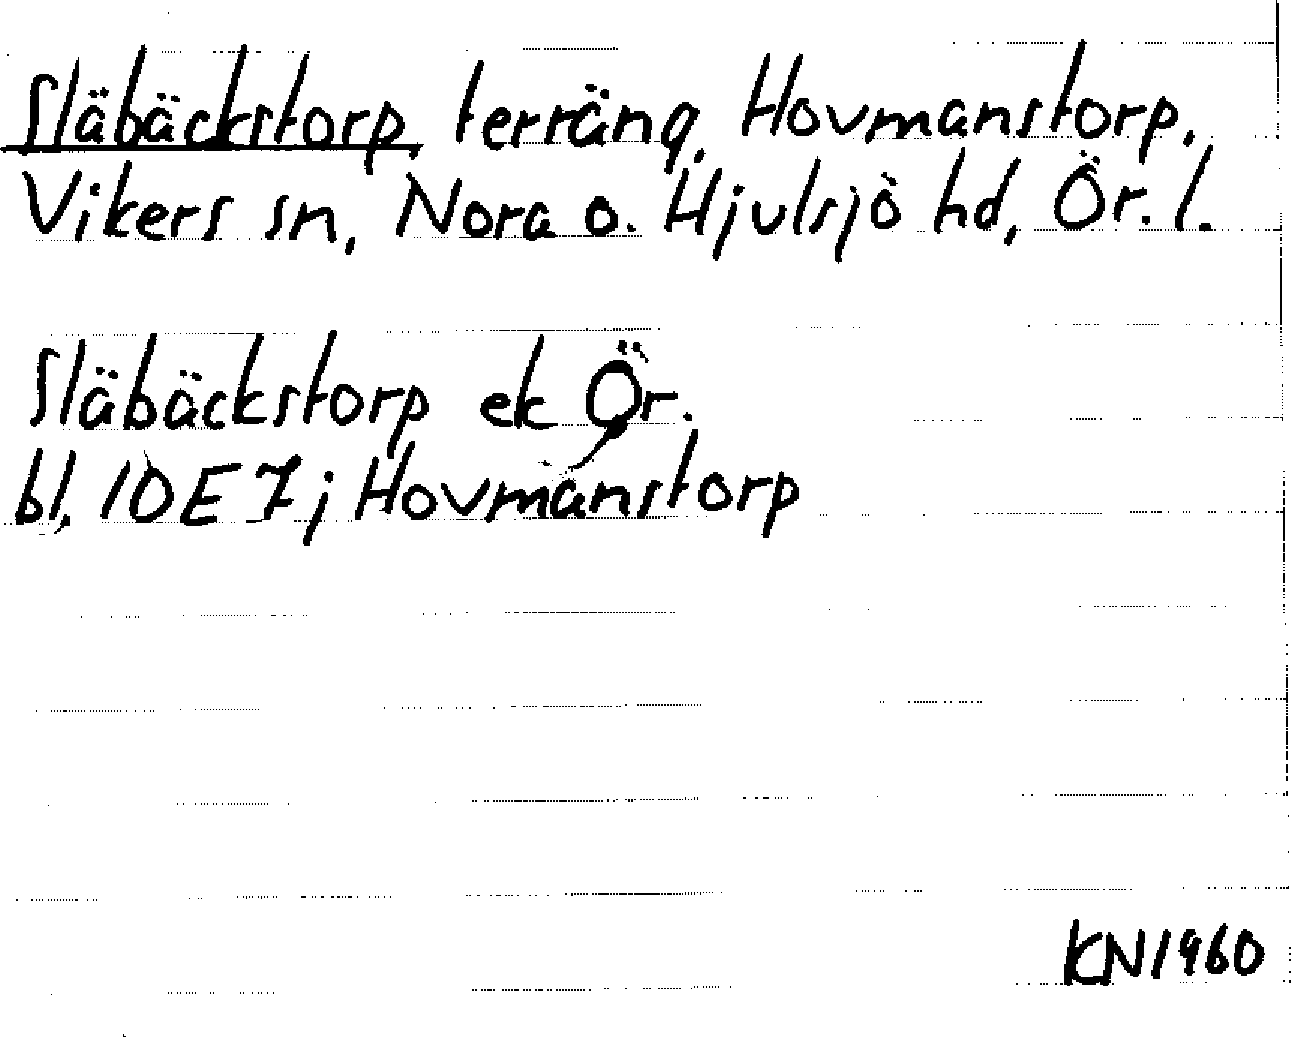 Släbäckstorp, terräng, Hovmanstorp,
Vikers sn, Nora o. Hjulsjö hd, Ör. l.
Släbäckstorp ek Ör.
bl. 10E 7j Hovmanstorp
KN1960